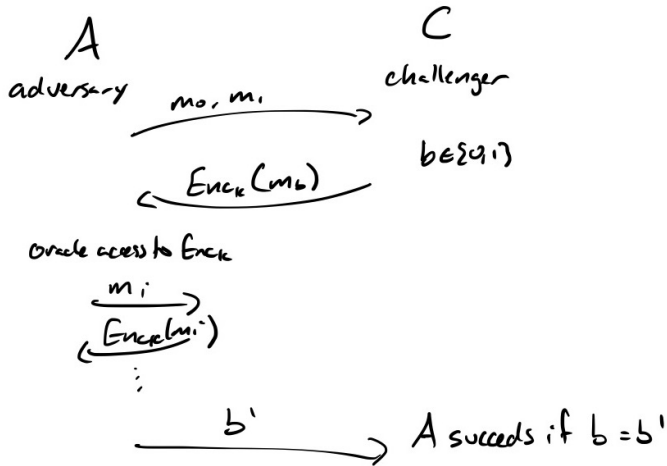 A
C
adversary
challenger
m₀, m₁
b∈{0,1}
Encₖ(m_b)
oracle access to Encₖ
mᵢ
Encₖ(mᵢ)
⋮
b'
A succeds if b = b'